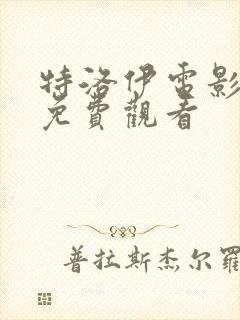 特洛伊電影
免費觀看
普拉斯杰尔羅